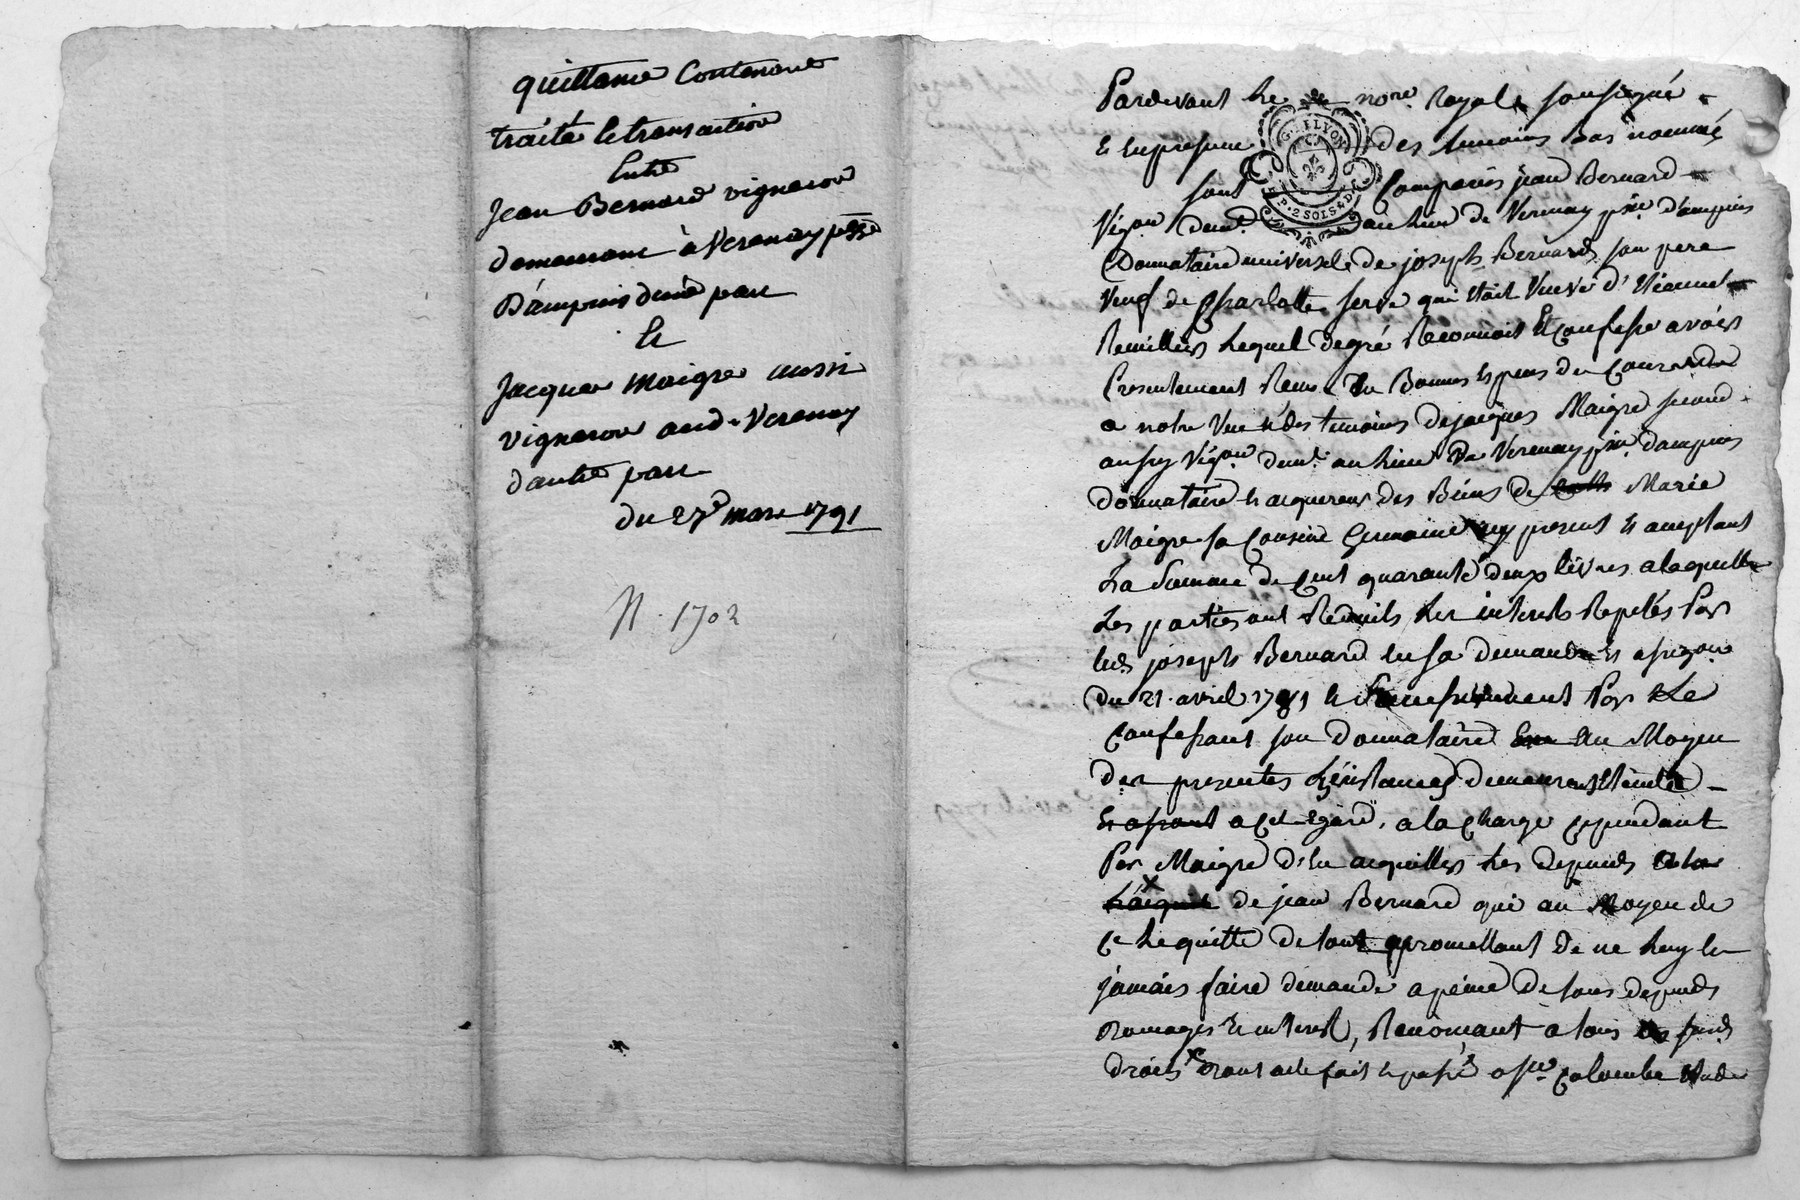 quittance Contenant
traité et transaction
Entre
Jean Bernard vigneron
demeurant à Verenay psse
D'ampuis d'une part
Et
Jacques Maigre aussi
vigneron aud. Verenay
d'autre part
du 27e mars 1791
N. 1702
Pardevant le nore. Royal soussigné
et en presence des temoins Bas nommés
G. DE LYON
P. 2 SOLS 4 D.
sont Comparus jean Bernard
Vigon demt. au lieu de Verenay psse d'ampuis
Donnataire universel de joseph Bernard son pere
veuf de Charlotte serve qui etait Veuve d'Etienne
Remillier lequel degré Reconnoit Et Confesse avoir
Presentement Recu En Bonnes Especes de Cours
a notre Vue et des temoins de jacques Maigre second
aussy Vigon. demt. au lieu De Verenay psse. dampuis
donnataire et acquereur des Biens de Marie
Maigre sa Cousine Germaine icy present et acceptant
La Somme de Cent quarante deux livres a laquelle
Les parties ont Reduits Les interets Repetés Par
led. joseph Bernard en sa demande et assigon
du 21 avril 1781 et Par Le
Confessant son Donnataire Au Moyen
des presentes L'instance demeure Eteinte
a Cet Egard, a la Charge Cependant
Par Maigre d'En acquitter Les Depends
de jean Bernard qui au Moyen de
Ce Le quitte de tout promettant De ne Luy En
jamais faire demande a peine De tous depends
Domages et interest, Renoncant a tous
droits Dont acte fait et passé a Ste Colombe Etude